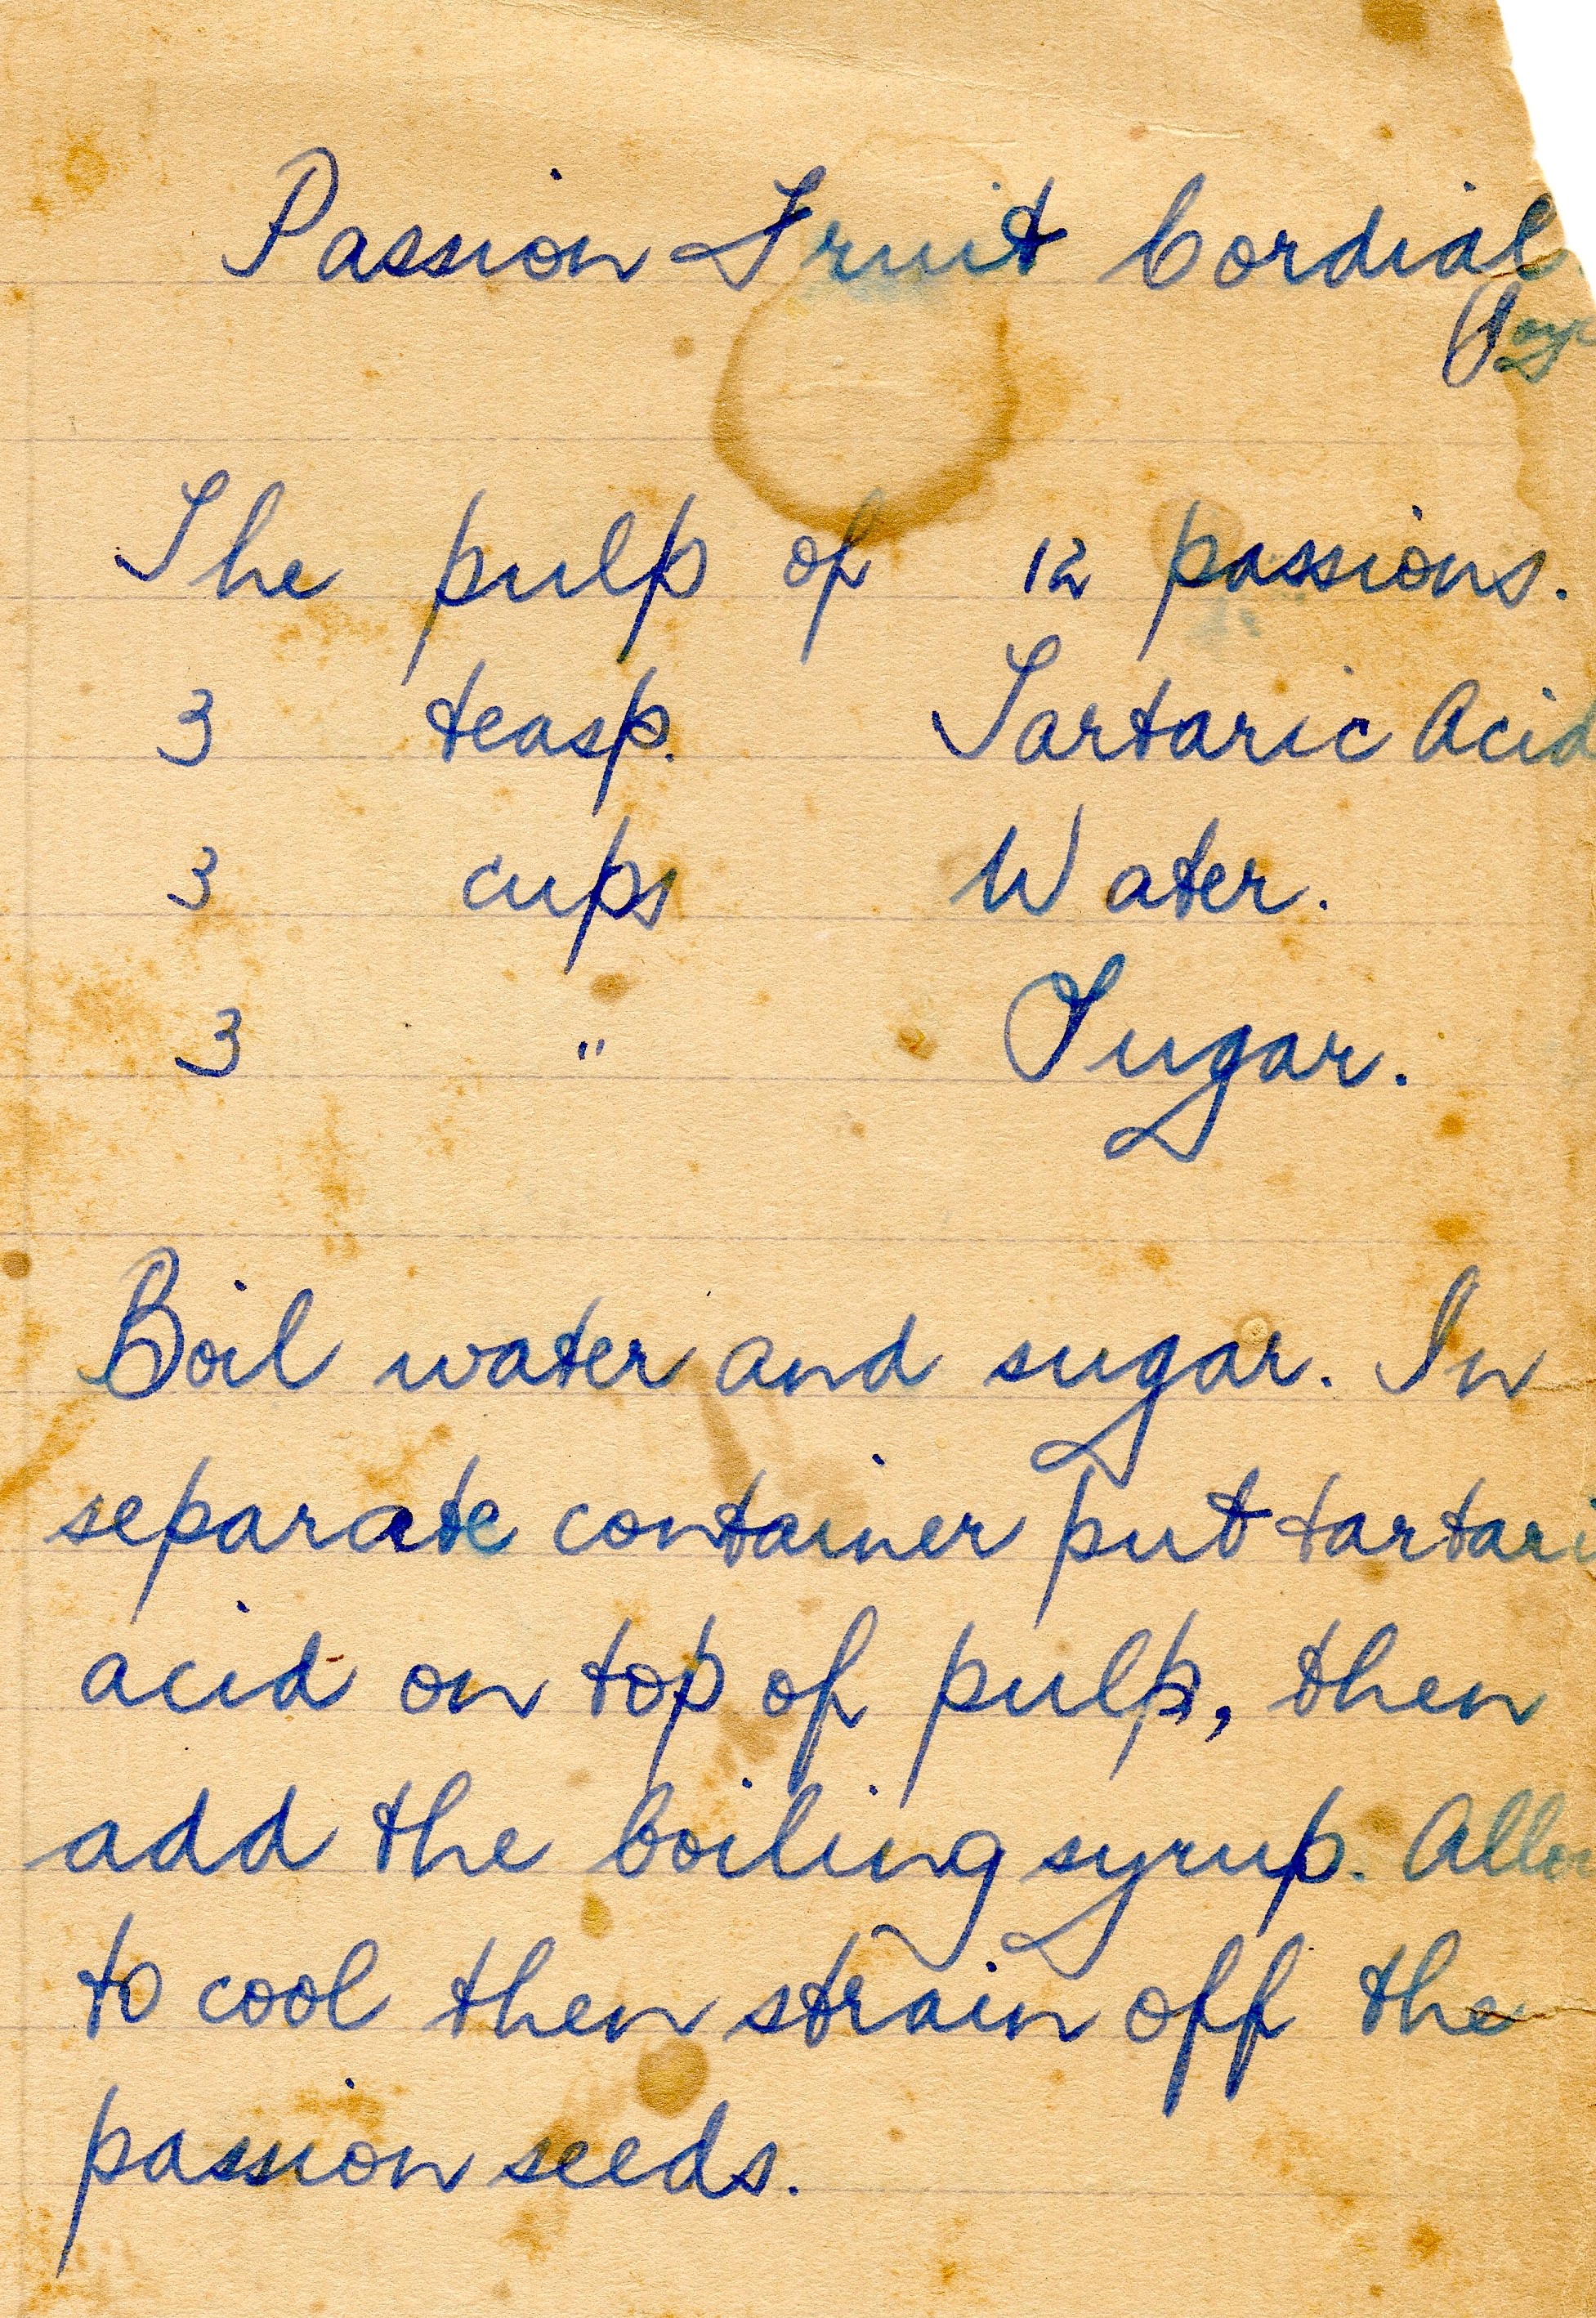 Passion Fruit Cordial
The pulp of 12 passions.
3 teasp. Tartaric Acid
3 cups Water.
3 " Sugar.
Boil water and sugar. In
separate container put tartari
acid on top of pulp, then
add the boiling syrup. Allow
to cool then strain off the
passion seeds.